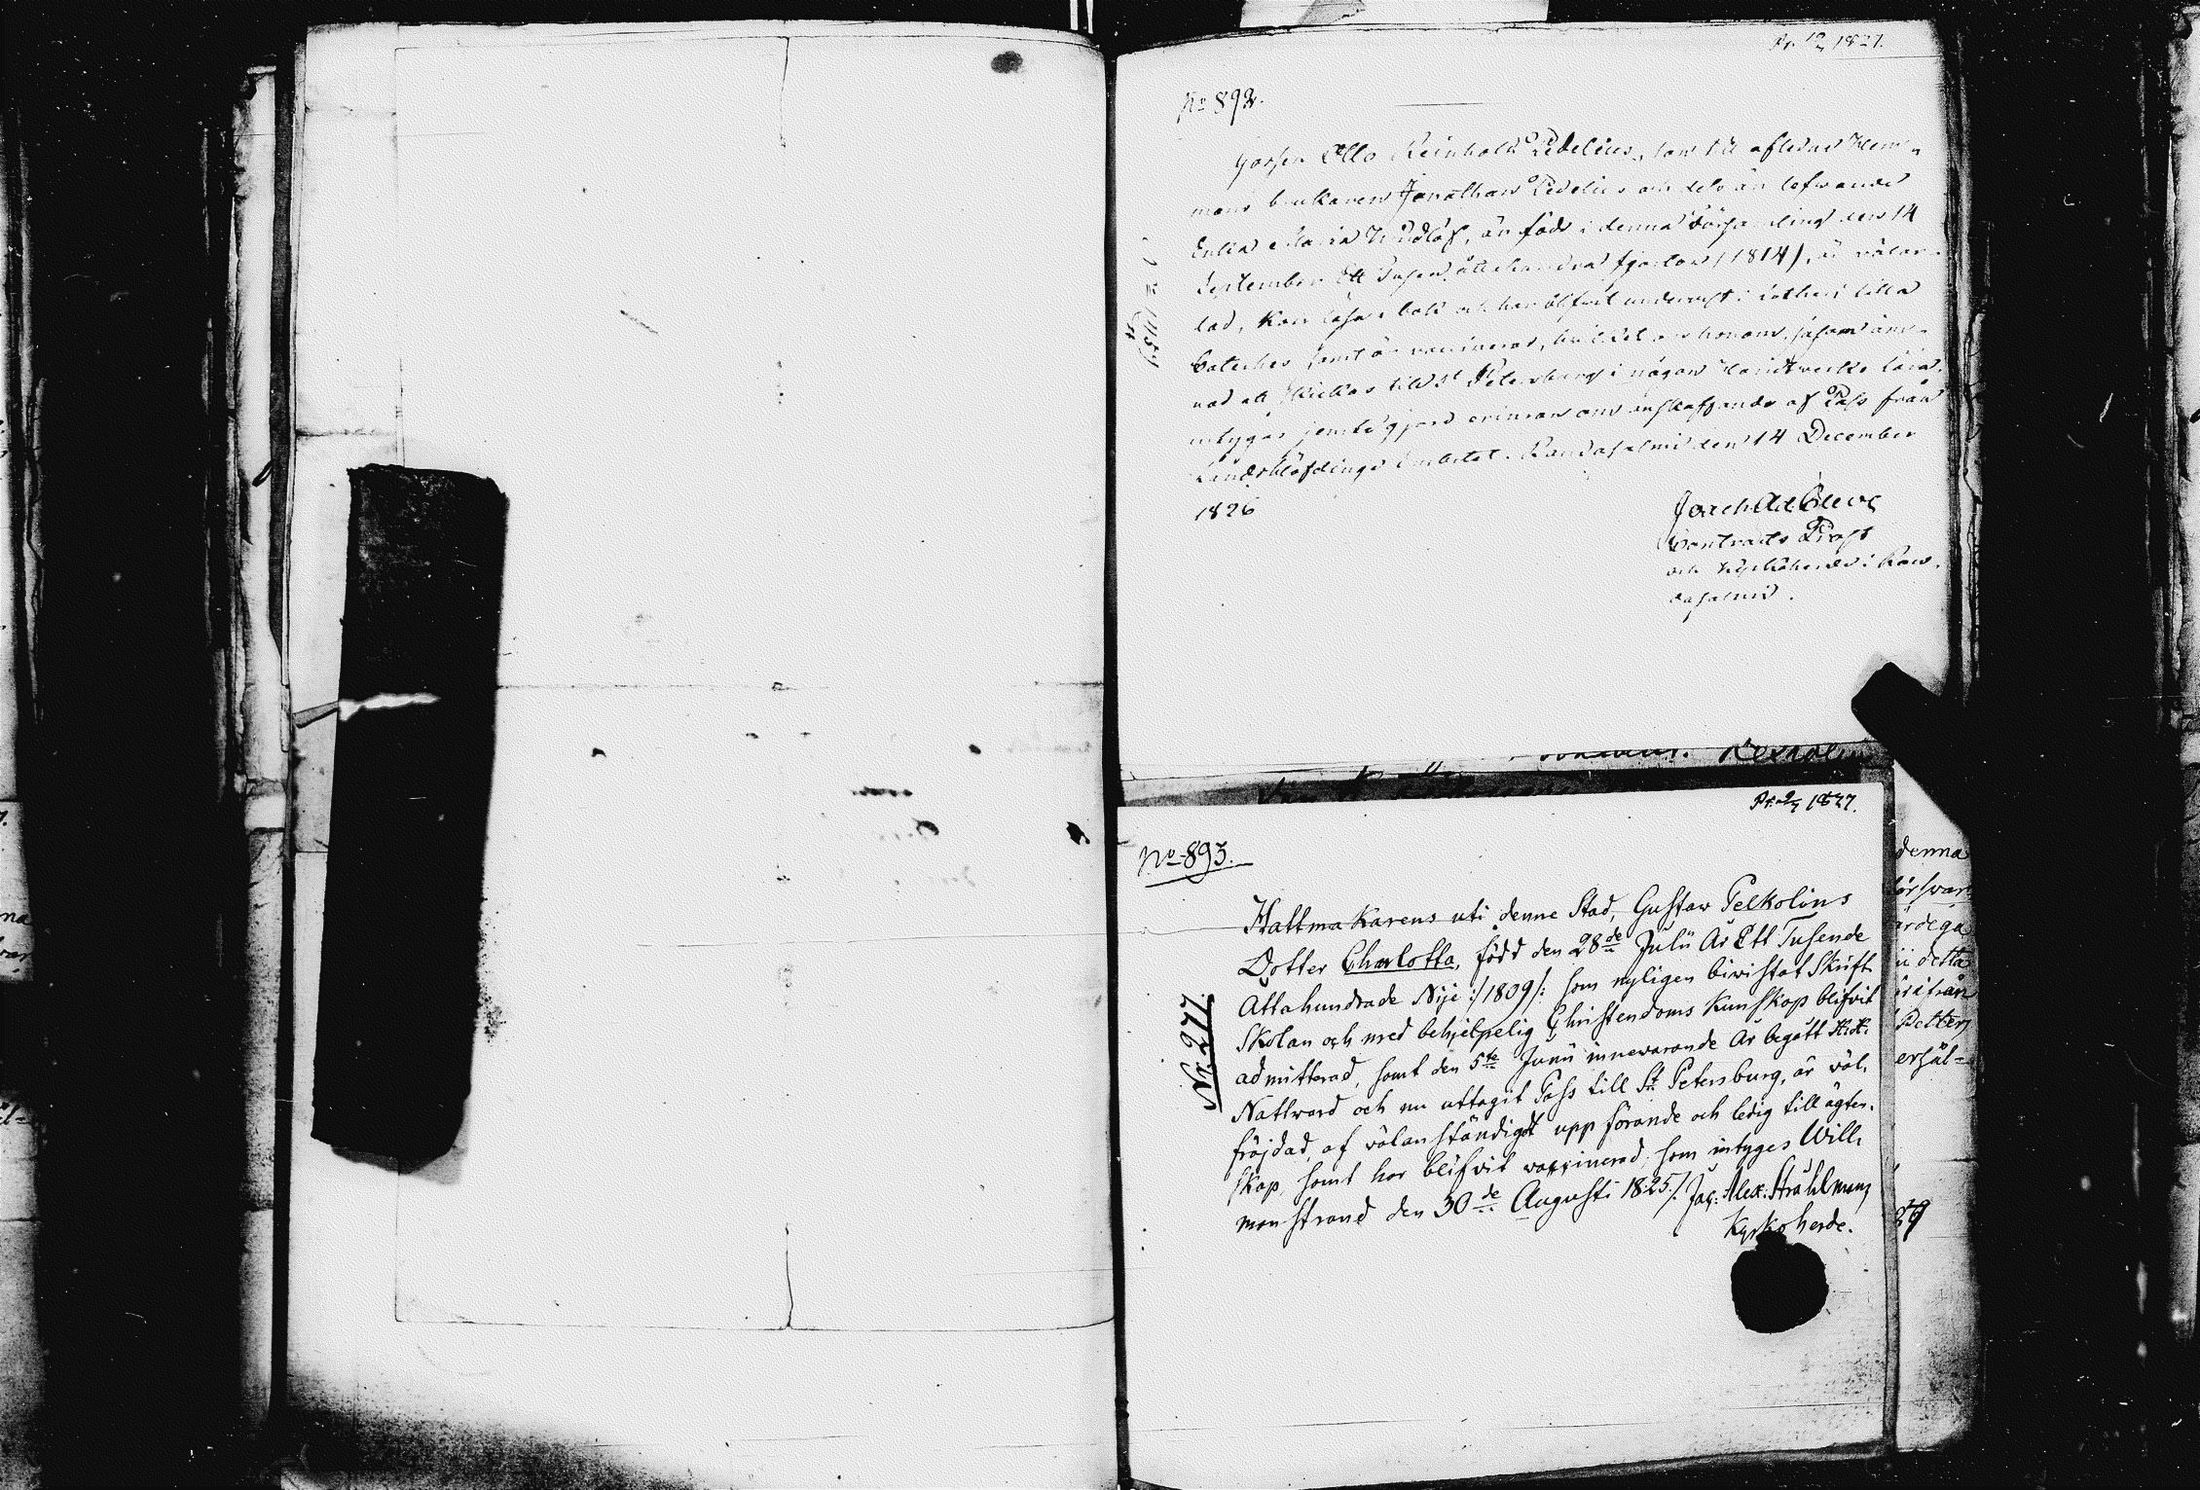 Pr. 1827.
No 892.
Gossen Otto Reinhold Pedelius, son till afledne Hem-
mans brukaren Jonathan Pedelius och dess än lefwande
Enka Maria, är född i denna Församling den 14
September Ett Tusen åttahundra fjorton (1814), är
lad, kan läsa i bok och har blifvit underwist i Lutheri lilla
Cateches samt är vaccinerad, hwilket honom, såsom äm-
nad att skickas till St Petersburg i någon Handtwerks lära,
intygas jemte gjord erinran om anskaffande af Pass från
Landshöfdinge Embetet. Randasalmi den 14 December
1826
Joach Ad Cleve
Contracts Prost
och Kyrkoherde i Ran-
dasalmi.
Pr. 9/7 1827.
No 893.
Nr. 277.
Hattmakarens uti denne Stad, Gustav Pelkolins
Dotter Charlotta, född den 28de Julii År Ett Tusende
Åttahundrade Nije :/1809/: som nyligen biwistat Skrift
Skolan och med behjelpelig Christendoms Kunskap blifvit
admitterad, samt den 5te Junii innevarande År begått H.H.
Nattward och nu uttagit Pass till St. Petersburg, är väl
fräjdad, af välanständigt uppförande och ledig till ägten-
skap, samt har blifvit vaccinerad; som intyges Will-
manstrand den 30de Augusti 1825./. Jac: Alex: Strahlman,
Kyrkoherde.
denna
detta
ifrån
Petters